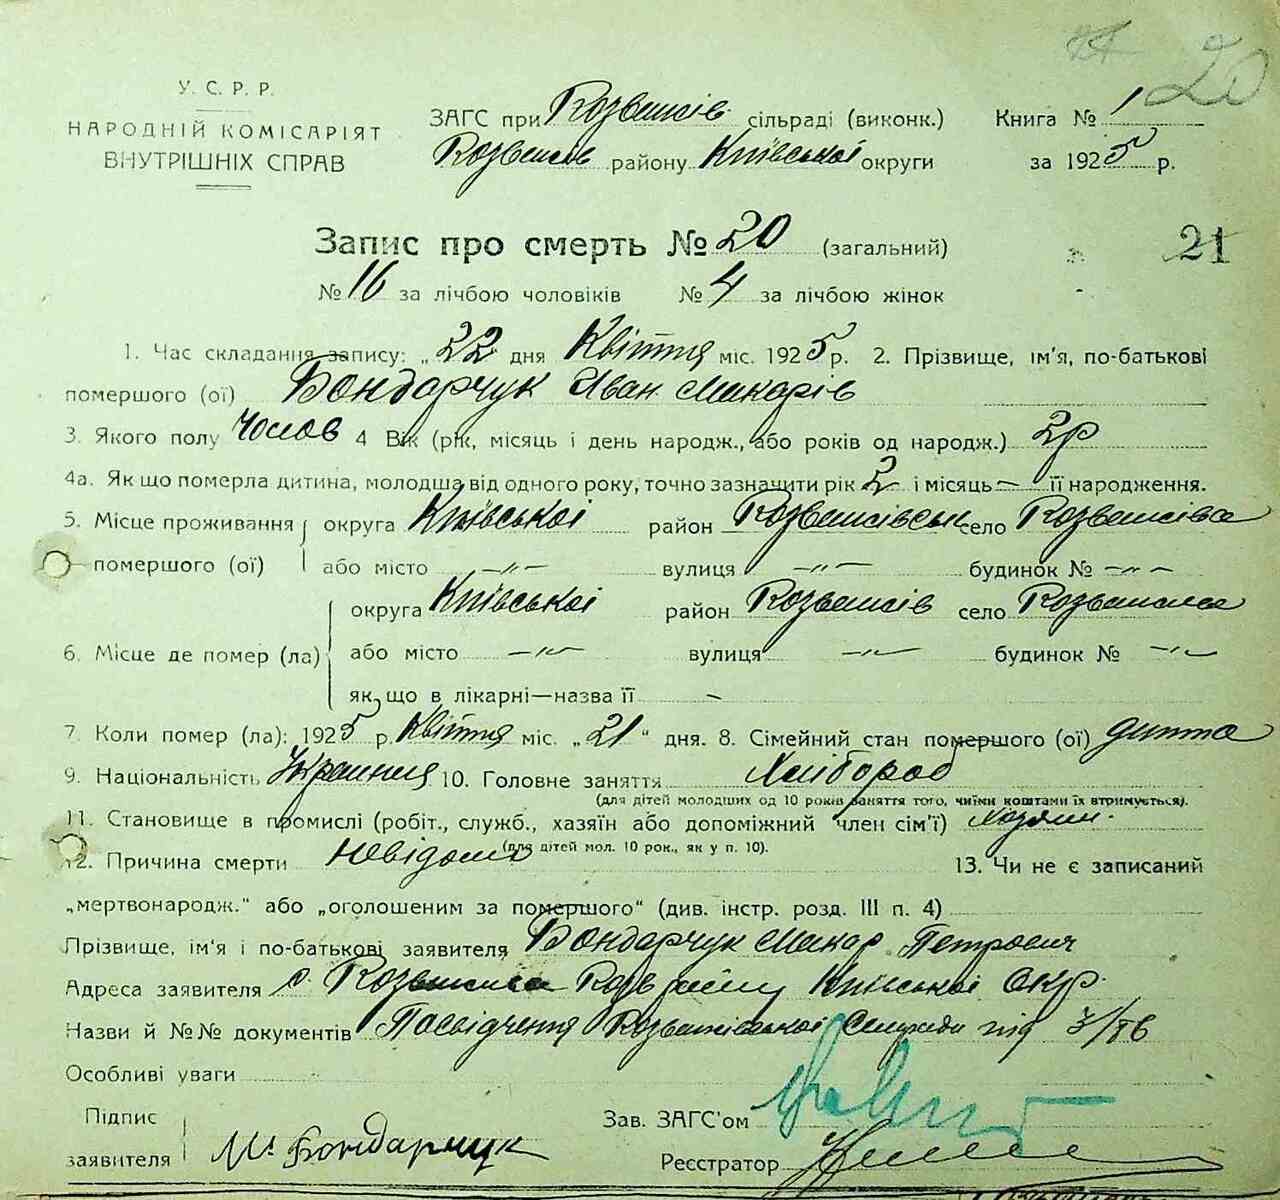 20
У. С. Р. Р.
НАРОДНІЙ КОМІСАРІЯТ
ВНУТРІШНІХ СПРАВ
ЗАГС при Розважів сільраді (виконк.) Книга № 1
Розважів району Київської округи за 1925 р.
Запис про смерть № 20 (загальний) 21
№ 16 за лічбою чоловіків № 4 за лічбою жінок
1. Час складання запису: „22 дня Квітня міс. 1925 р. 2. Прізвище, ім'я, по-батькові
помершого (ої) Бондарчук Иван Макарів
3. Якого полу Чолов 4 Вік (рік, місяць і день народж., або років од народж.) 2р
4а. Як що померла дитина, молодша від одного року, точно зазначити рік 2 і місяць – її народження.
5. Місце проживання округа Київської район Розважівськ село Розважіва
помершого (ої) або місто —„— вулиця —„— будинок № —„—
округа Київської район Розважів село Розважива
6. Місце де помер (ла) або місто —„— вулиця —„— будинок № —„—
як що в лікарні—назва її –
7. Коли помер (ла): 1925 р. Квітня міс. „21" дня. 8. Сімейний стан помершого (ої) дитта
9. Національність Украинец 10. Головне заняття Хлібороб
(для дітей молодших од 10 років заняття того, чиїми коштами їх втримується).
11. Становище в промислі (робіт., служб., хазяїн або допоміжний член сім'ї) Хозяин.
(для дітей мол. 10 рок., як у п. 10).
12. Причина смерти Невідомо 13. Чи не є записаний
„мертвонародж." або „оголошеним за помершого" (див. інстр. розд. III п. 4)
Прізвище, ім'я і по-батькові заявителя Бондарчук Макар Петрович
Адреса заявителя с. Розважива Розв району Київської Окр.
Назви й №№ документів Посвідчення Розважівської Сельради від
Особливі уваги
Підпис
заявителя М. Бондарчук
Зав. ЗАГС'ом
Реєстратор